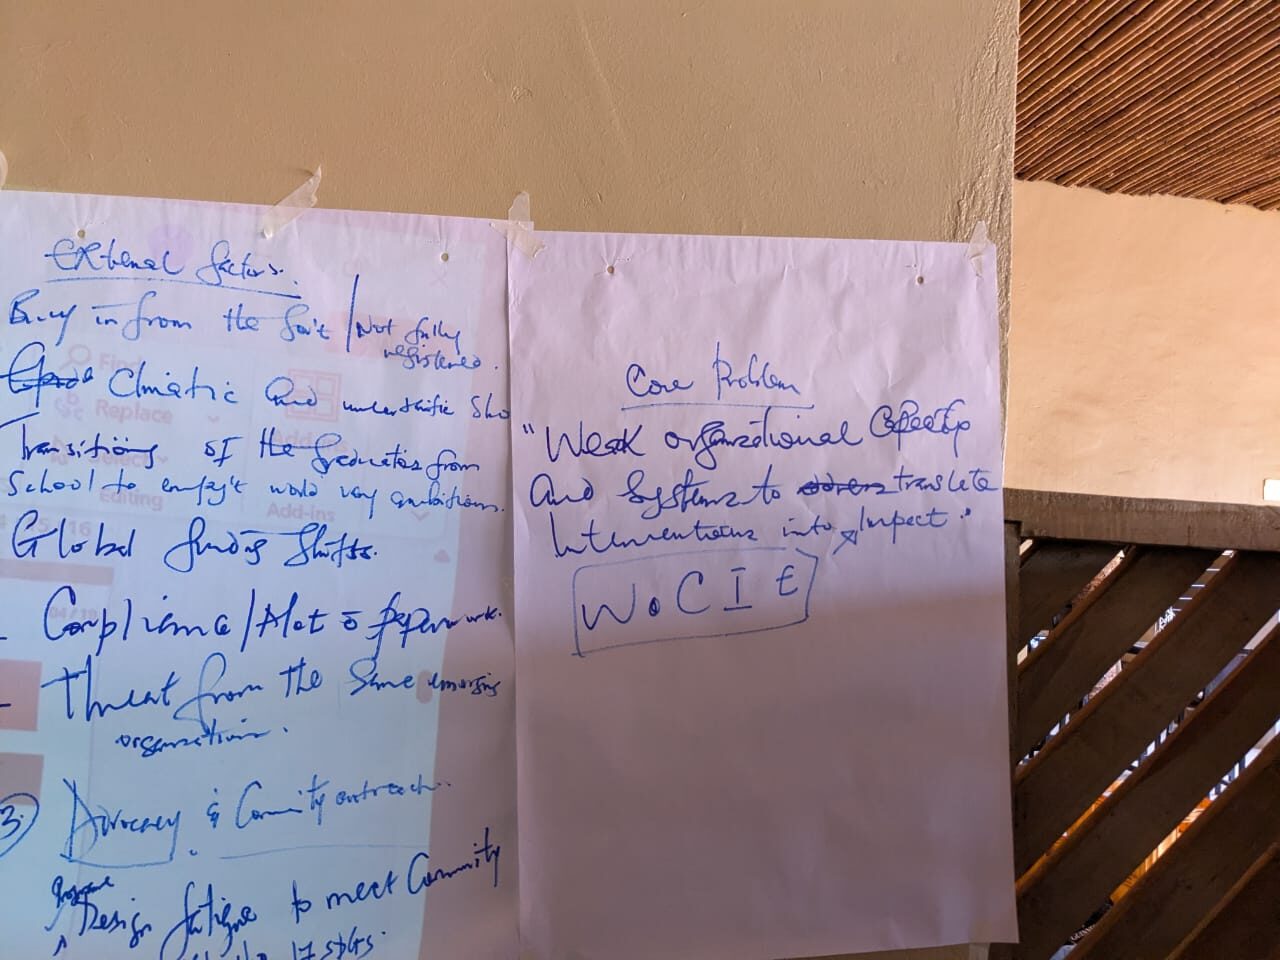 External factors.
Buy in from the Gov't / Not fully
registered.
Climatic and uncertain sho
Transitioning of the graduates from
School to emply't world very ambitious.
Global funding shifts.
- Compliance / Alot o paperwork.
- Threat from the same emerging
organizations.
3. Advocacy & Comunity outreach.
Programme
Design fatigue to meet Comunity
17 SDGs.
Core Problem
"Weak organizational Capacity
and Systems to translate
Interventions into Impact."
W.CIE
Find
Replace
Select
Editing
Add-ins